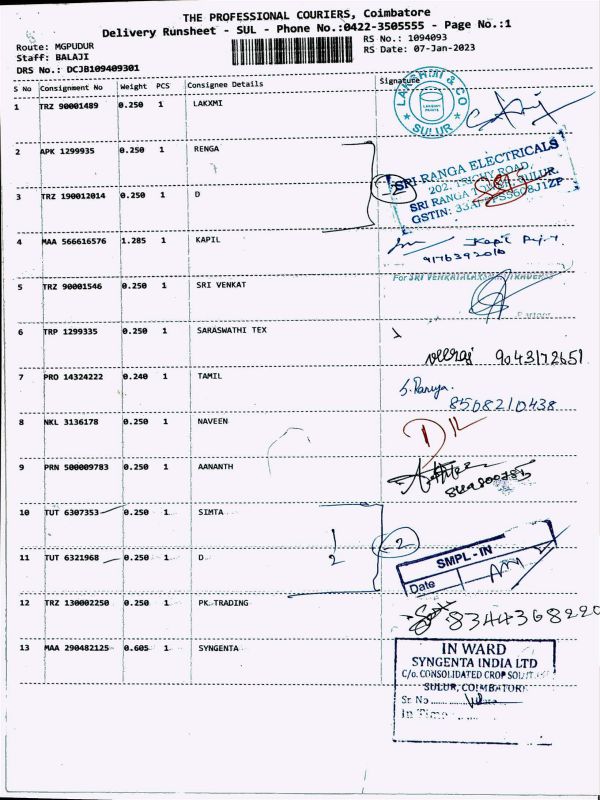 THE PROFESSIONAL COURIERS, Coimbatore
Delivery Runsheet - SUL - Phone No.:0422-3505555 - Page No.:1
Route: MGPUDUR
Staff: BALAJI
DRS No.: DCJB109409301
RS No.: 1094093
RS Date: 07-Jan-2023
S No Consignment No Weight PCS Consignee Details Signature
1 TRZ 90001489 0.250 1 LAKXMI
LAKSHMI & CO
SULUR
2 APK 1299935 0.250 1 RENGA
SRI RANGA ELECTRICALS
202, TRICHY ROAD,
SRI RANGA SULUR.
GSTIN:
3 TRZ 190012014 0.250 1 D
2
4 MAA 566616576 1.285 1 KAPIL
Kapil
9176392010
5 TRZ 90001546 0.250 1 SRI VENKAT
For SRI VENKATALAKSHMI TRADERS
6 TRP 1299335 0.250 1 SARASWATHI TEX
Veeraj 9043172651
7 PRO 14324222 0.240 1 TAMIL
S. Paruya.
8508210438
8 NKL 3136178 0.250 1 NAVEEN
9 PRN 500009783 0.250 1 AANANTH
10 TUT 6307353 0.250 1 SIMTA
2
11 TUT 6321968 0.250 1 D
SMPL - IN
Date
12 TRZ 130002250 0.250 1 PK TRADING
8344368220
13 MAA 290482125 0.605 1 SYNGENTA
IN WARD
SYNGENTA INDIA LTD
C/o. CONSOLIDATED CROP
SULUR, COIMBATORE
Sr. No
In Time